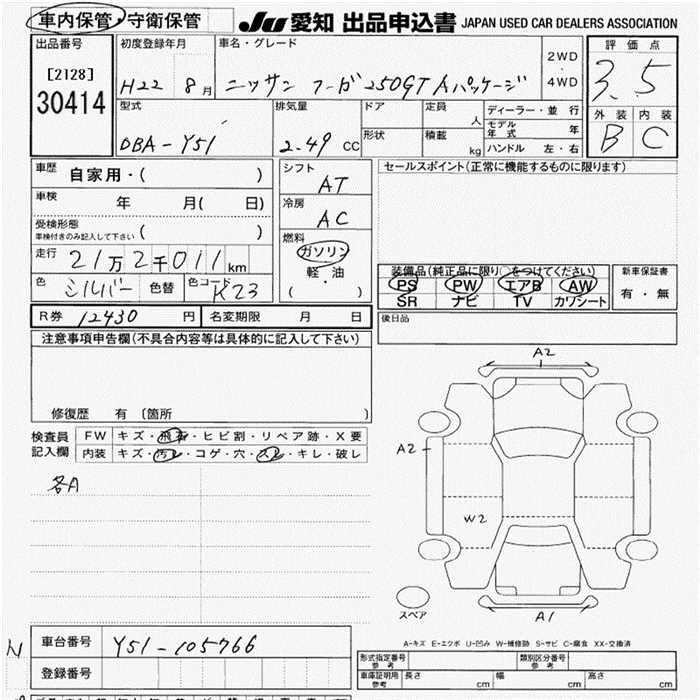 車内保管・守衛保管
JU 愛知 出品申込書 JAPAN USED CAR DEALERS ASSOCIATION
出品番号 [2128] 30414
初度登録年月 H22 8月
車名・グレード ニッサン フーガ 250GT Aパッケージ
2WD・4WD
評価点 3.5
外装 B 内装 C
型式 DBA-Y51
排気量 2.49 CC
ドア 形状
定員 人 積載 kg
ディーラー・並行
モデル年式 年
ハンドル 左・右
車歴 自家用・( )
車検 年 月( 日)
受検形態 車検付きのみ記入して下さい ( )
走行 21万2千011km
色 シルバー 色替 色コード K23
シフト AT
冷房 AC
燃料 ガソリン・軽油 ( )
セールスポイント(正常に機能するものに限ります)
装備品(純正品に限り○をつけてください)
PS PW エアB AW
SR ナビ TV カワシート
新車保証書 有・無
後日品
R券 12430 円 名変期限 月 日
注意事項申告欄(不具合内容等は具体的に記入して下さい)
修復歴 有 〔箇所 〕
検査員記入欄
FW キズ・飛石・ヒビ割・リペア跡・X要
内装 キズ・汚レ・コゲ・穴・スレ・キレ・破レ
各A
A2
A2
W2
A1
スペア
A-キズ E-エクボ U-凹み W-補修跡 S-サビ C-腐食 XX-交換済
車台番号 Y51-105766
登録番号
形式指定番号 参考 類別区分番号 参考
車庫証明用 参考 長さ cm 幅 cm 高さ cm